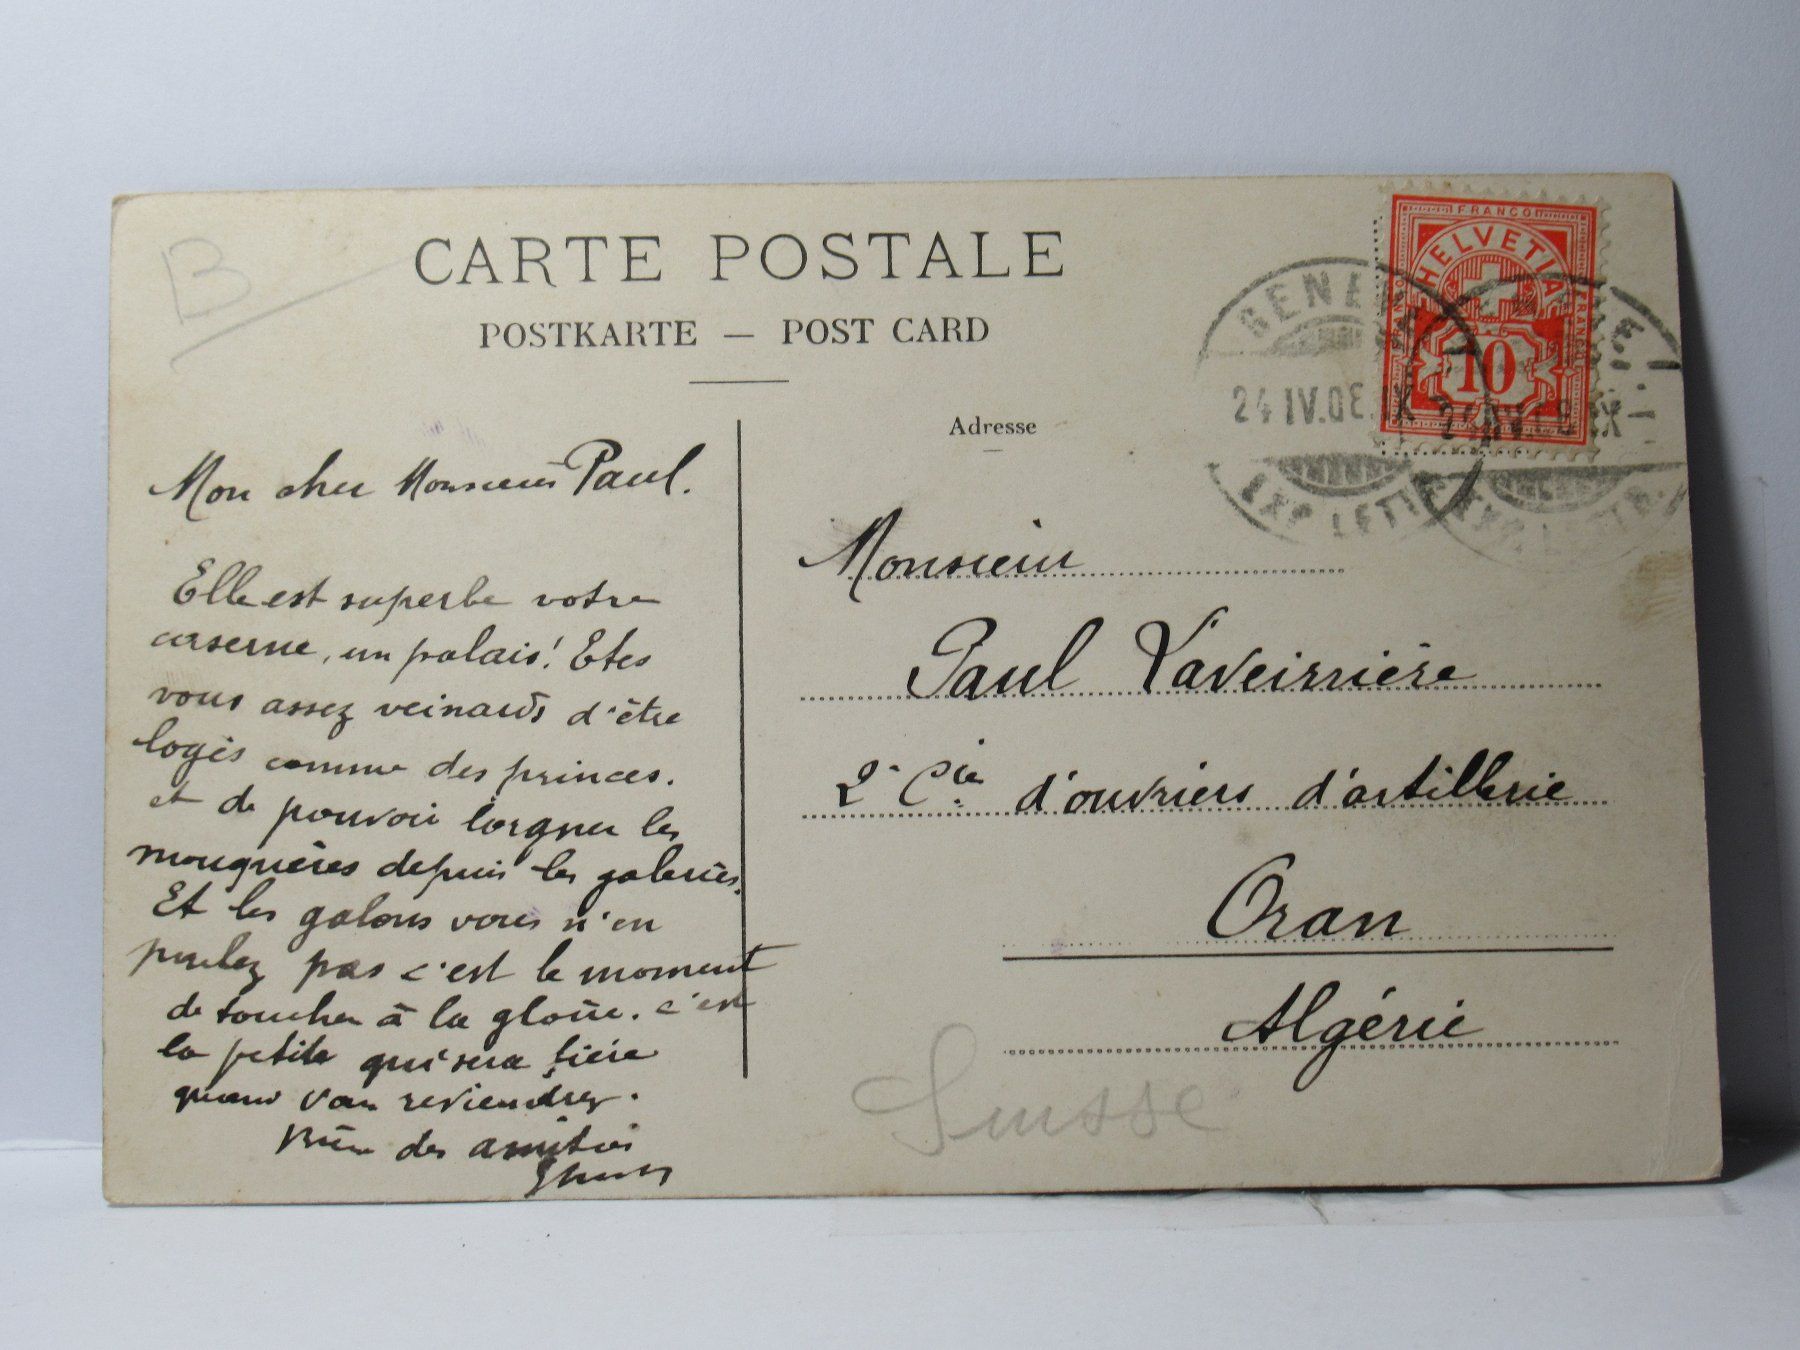 B
CARTE POSTALE
POSTKARTE — POST CARD
FRANCO
HELVETIA
FRANCO
FRANCO
10
GENE
24 IV.08. IX
EXP. LETT
Adresse
Mon cher Monsieur Paul.
Elle est superbe votre
caserne, un palais! Etes
vous assez veinards d'être
logés comme des princes.
et de pouvoir lorgner les
mouquères depuis les galeries.
Et les galons vous n'en
parlez pas c'est le moment
de toucher à la gloire. c'est
la petite qui sera fière
quand vous reviendrez.
Bien des amitiés
Monsieur
Paul Laveirrière
2e Cie d'ouvriers d'artillerie
Oran
Algérie
Suisse